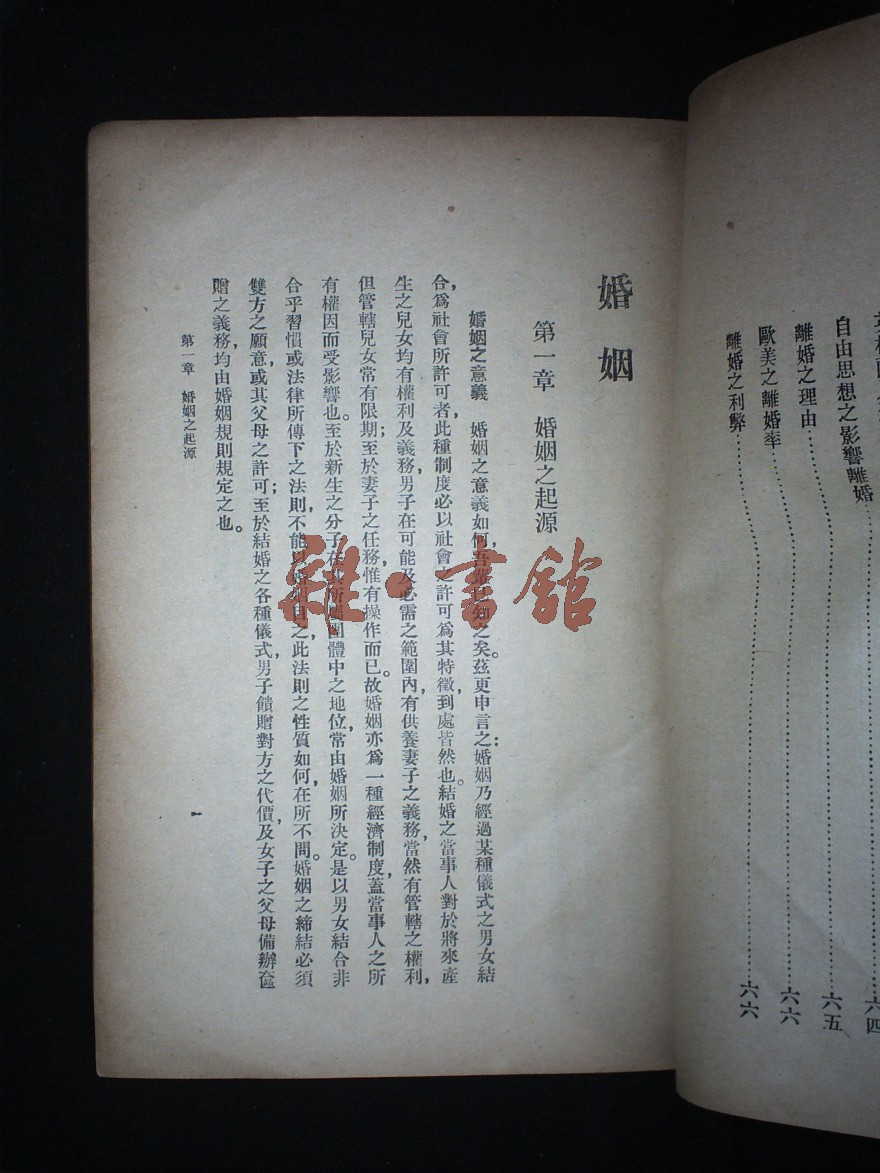 自由思想之影響離婚…………六五
離婚之理由…………六六
歐美之離婚率…………六六
離婚之利弊…………六六
婚姻
第一章 婚姻之起源
婚姻之意義 婚姻之意義如何,吾
知之矣。茲更申言之:婚姻乃經過某種儀式之男女結
合,爲社會所許可者,此種制度必以社會之許可爲其特徵,到處皆然也。結婚之當事人對於將來產
生之兒女均有權利及義務,男子在可能及必需之範圍內,有供養妻子之義務,當然有管轄之權利,
但管轄兒女常有限期;至於妻子之任務,惟有操作而已。故婚姻亦爲一種經濟制度,蓋當事人之所
有權因而受影響也。至於新生之分子在其所屬團體中之地位,常由婚姻所決定。是以男女結合非
合乎習慣或法律所傳下之法則,不能以婚姻目之,此法則之性質如何,在所不問。婚姻之締結必須
雙方之願意或其父母之許可;至於結婚之各種儀式,男子饋贈對方之代價,及女子之父母備辦奩
贈之義務,均由婚姻規則規定之也。
第一章 婚姻之起源
一
雜·書館